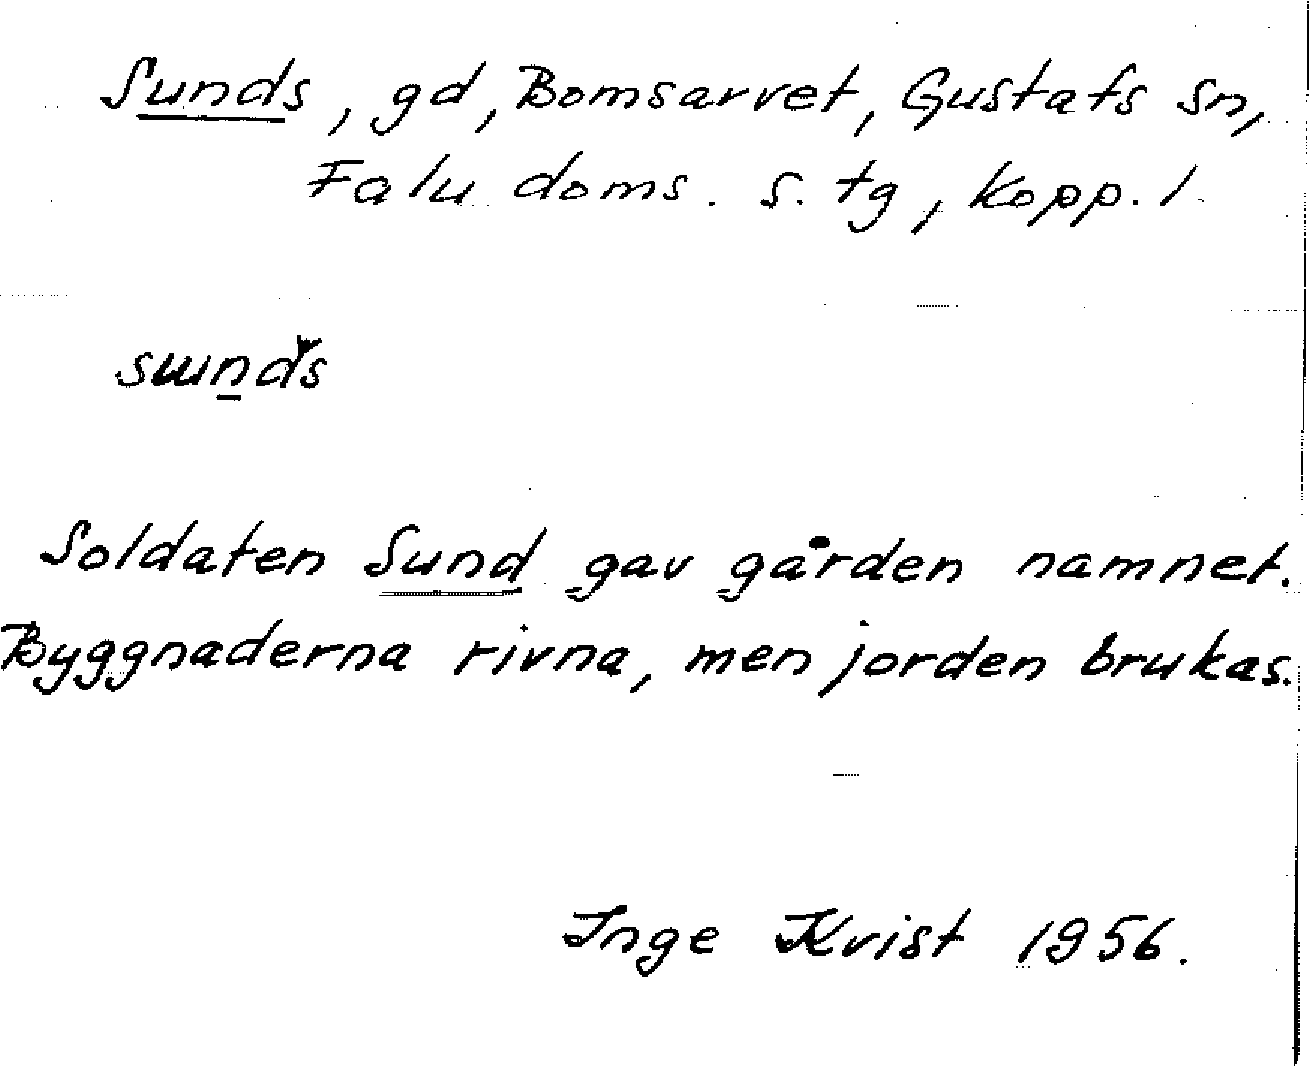 Sunds, gd, Bomsarvet, Gustafs sn,
Falu doms. s. tg, Kopp. l
Soldaten Sund gav gården namnet.
Byggnaderna rivna, men jorden brukas.
Inge Kvist 1956.